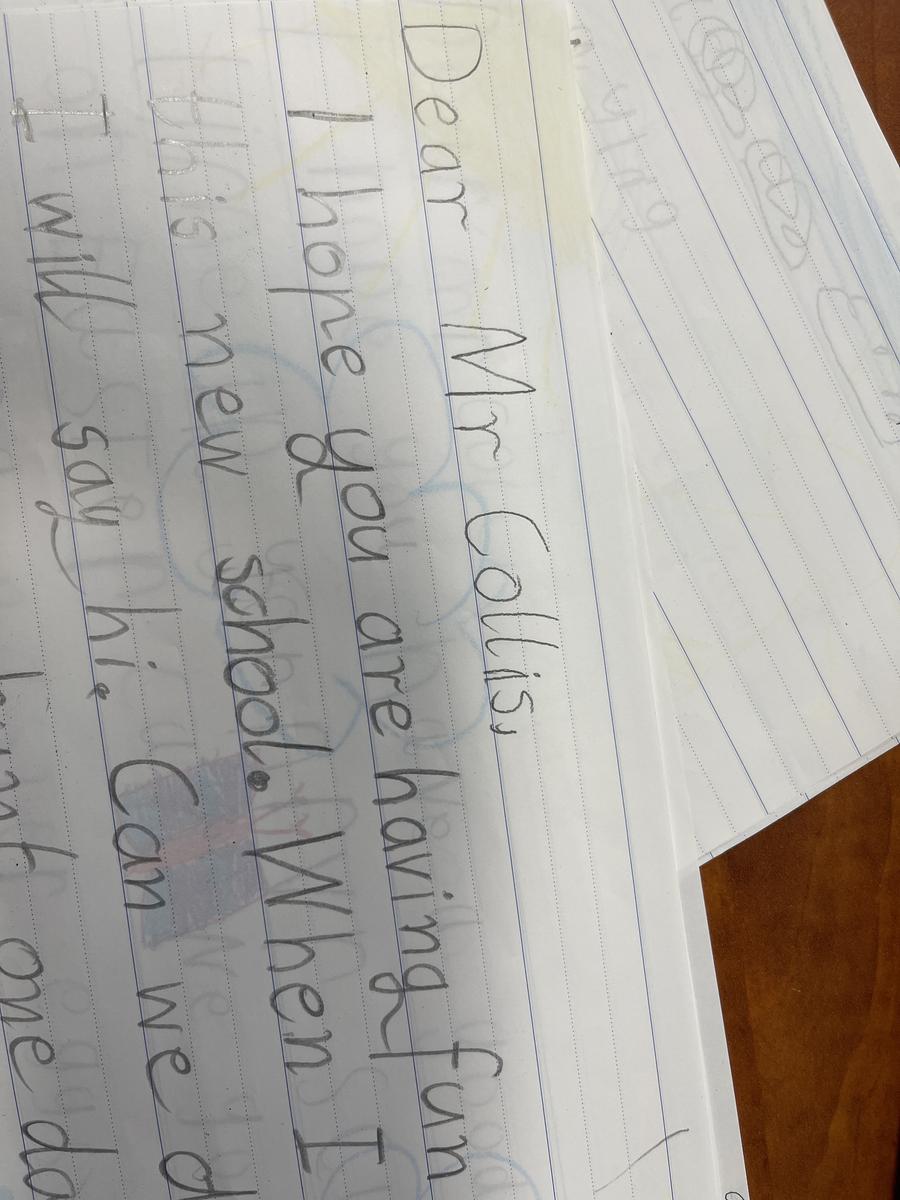 Dear Mr Collis,
I hope you are having fun
this new school. When I
I will say hi. Can we d
hunt one da